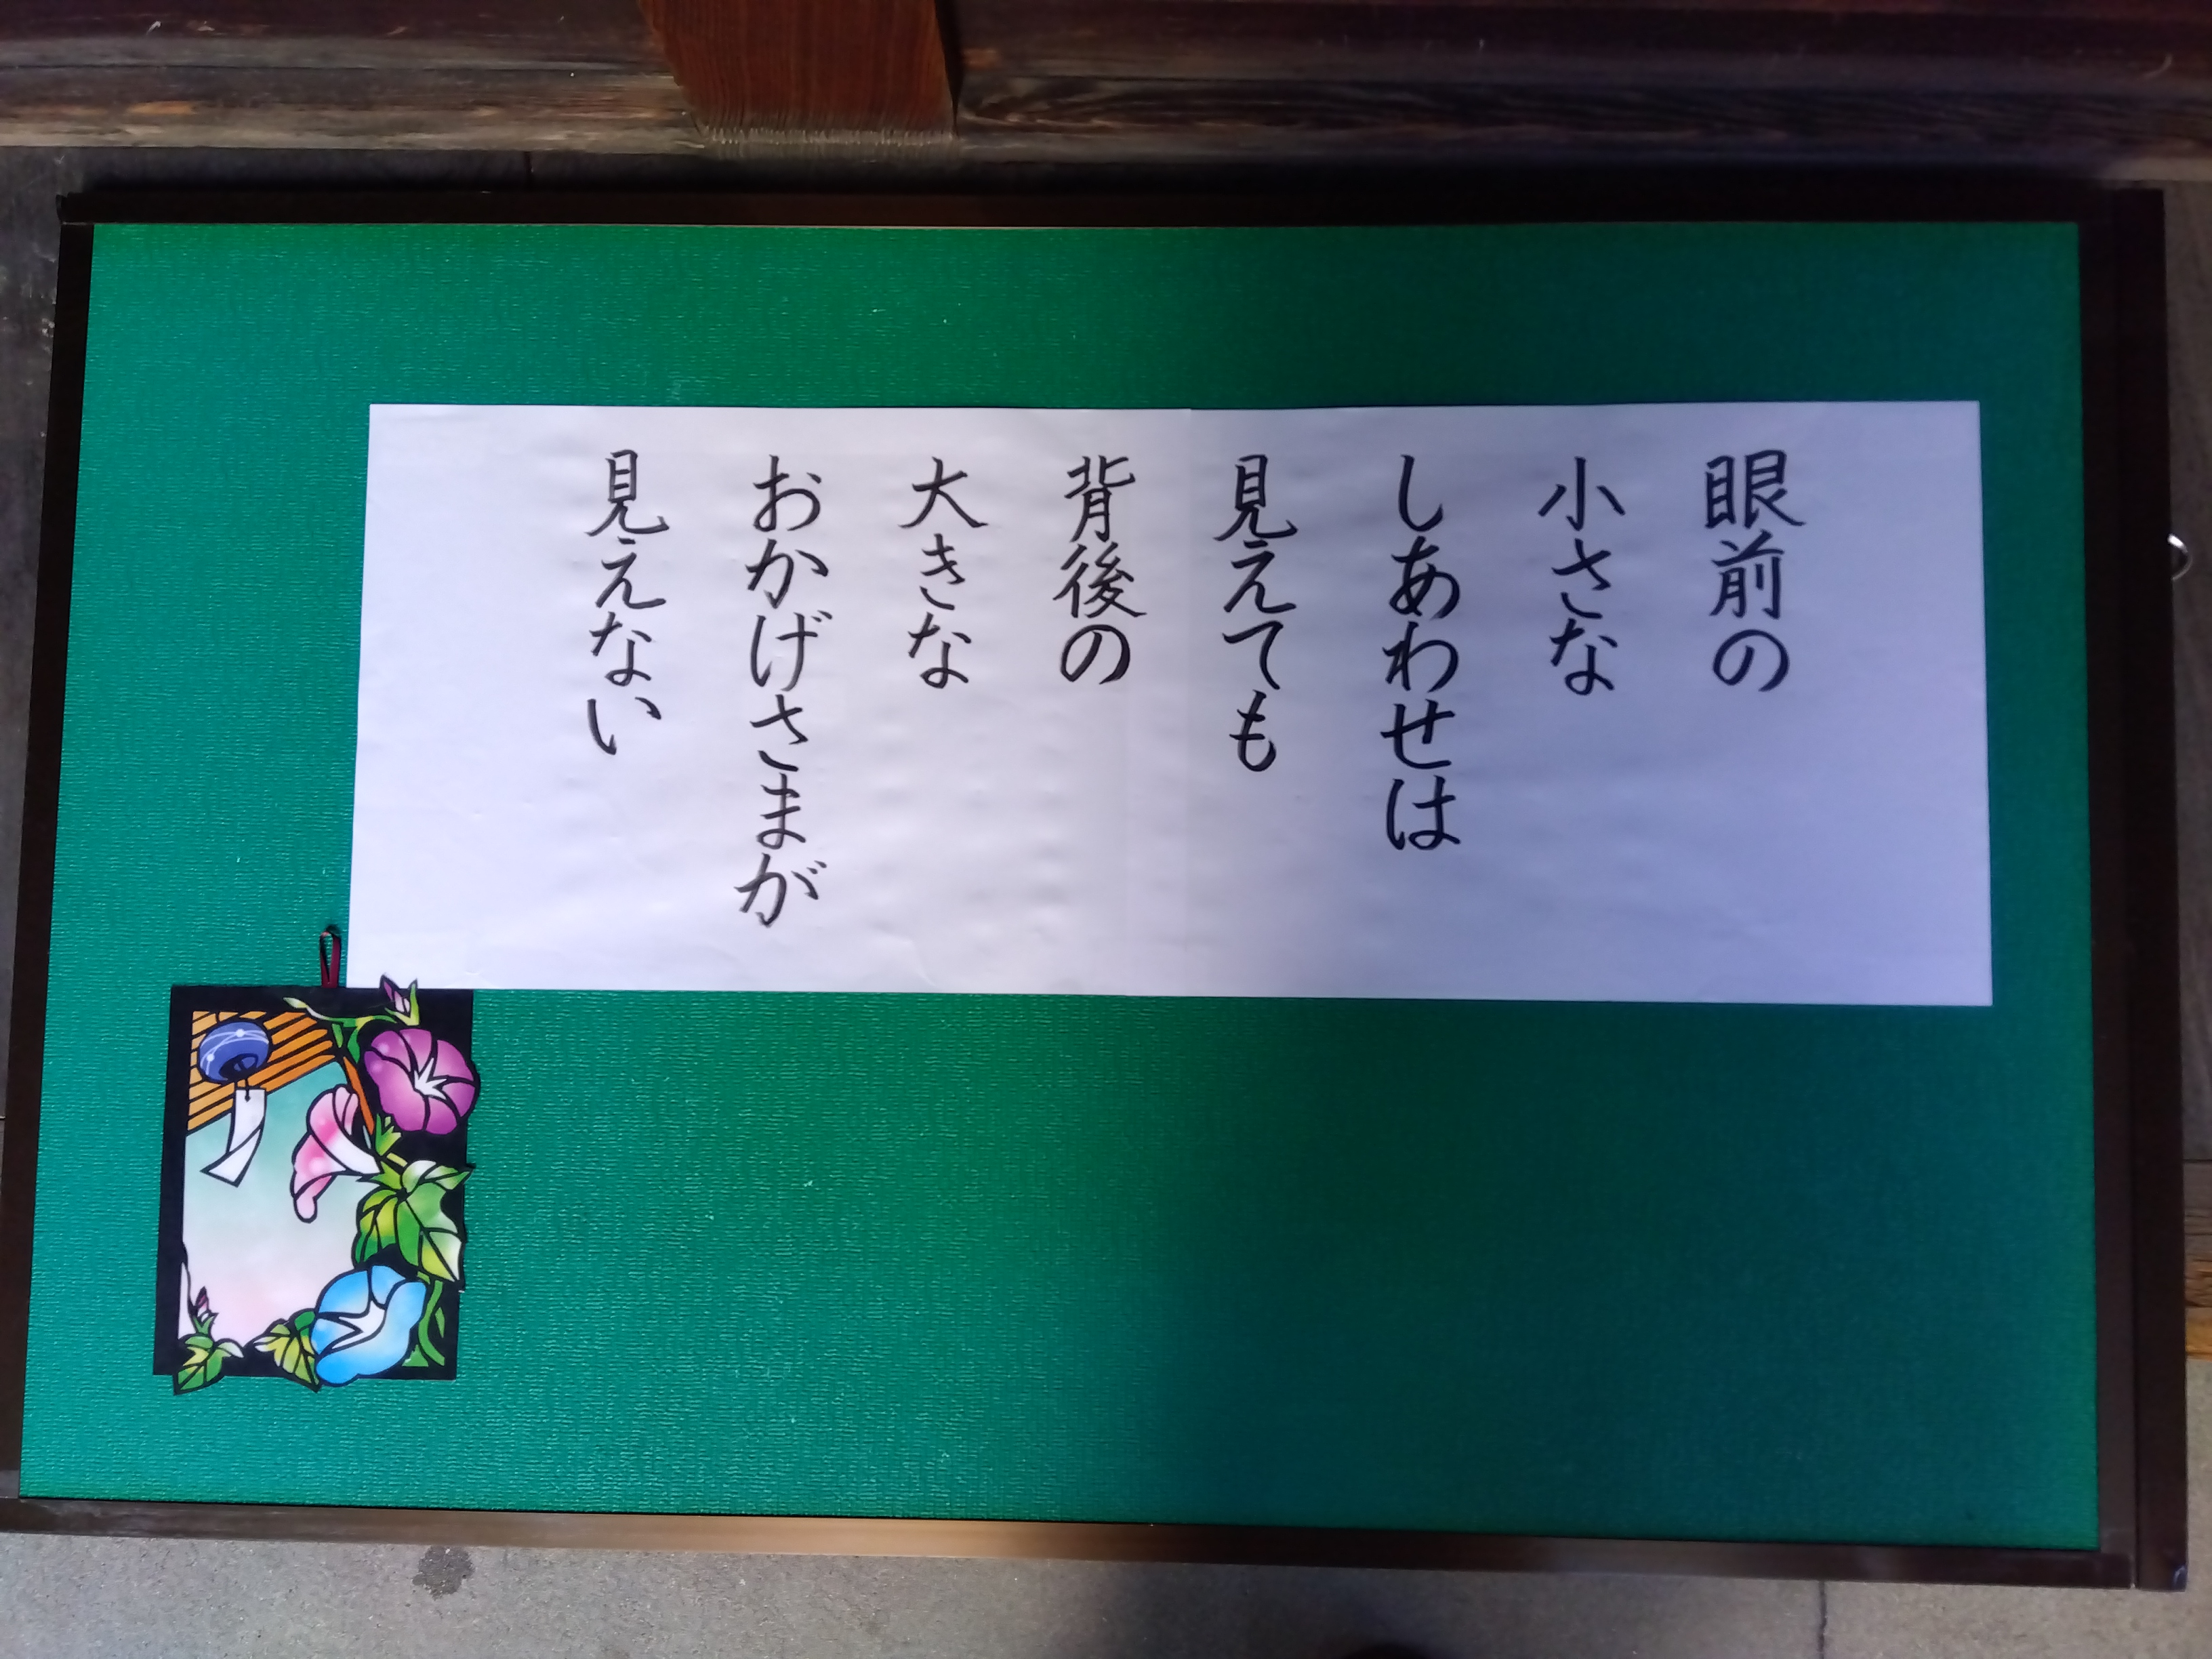 眼前の
小さな
しあわせは
見えても
背後の
大きな
おかげさまが
見えない